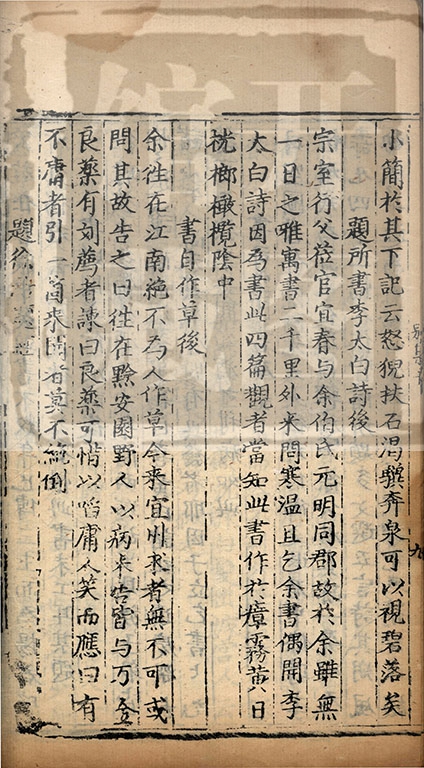 小簡於其下記云怒猊扶石渴驥奔泉可以視碧落矣
題所書李太白詩後
宗室行父莅官宜春與余伯氏元明同郡故於余雖無
一日之雅寓書二千里外来問寒温且乞余書偶開李
太白詩因爲書此四篇觀者當知此書作於瘴霧黄日
桄榔橄欖陰中
書自作草後
余徃在江南絶不为人作草今来宜州求者無不可或
問其故告之曰徃在黔安園野人以病来告皆与万金
良薬有刘薦者諫曰良薬可惜以啗庸人笑而應曰有
不庸者引一箇来聞者莫不絶倒
題